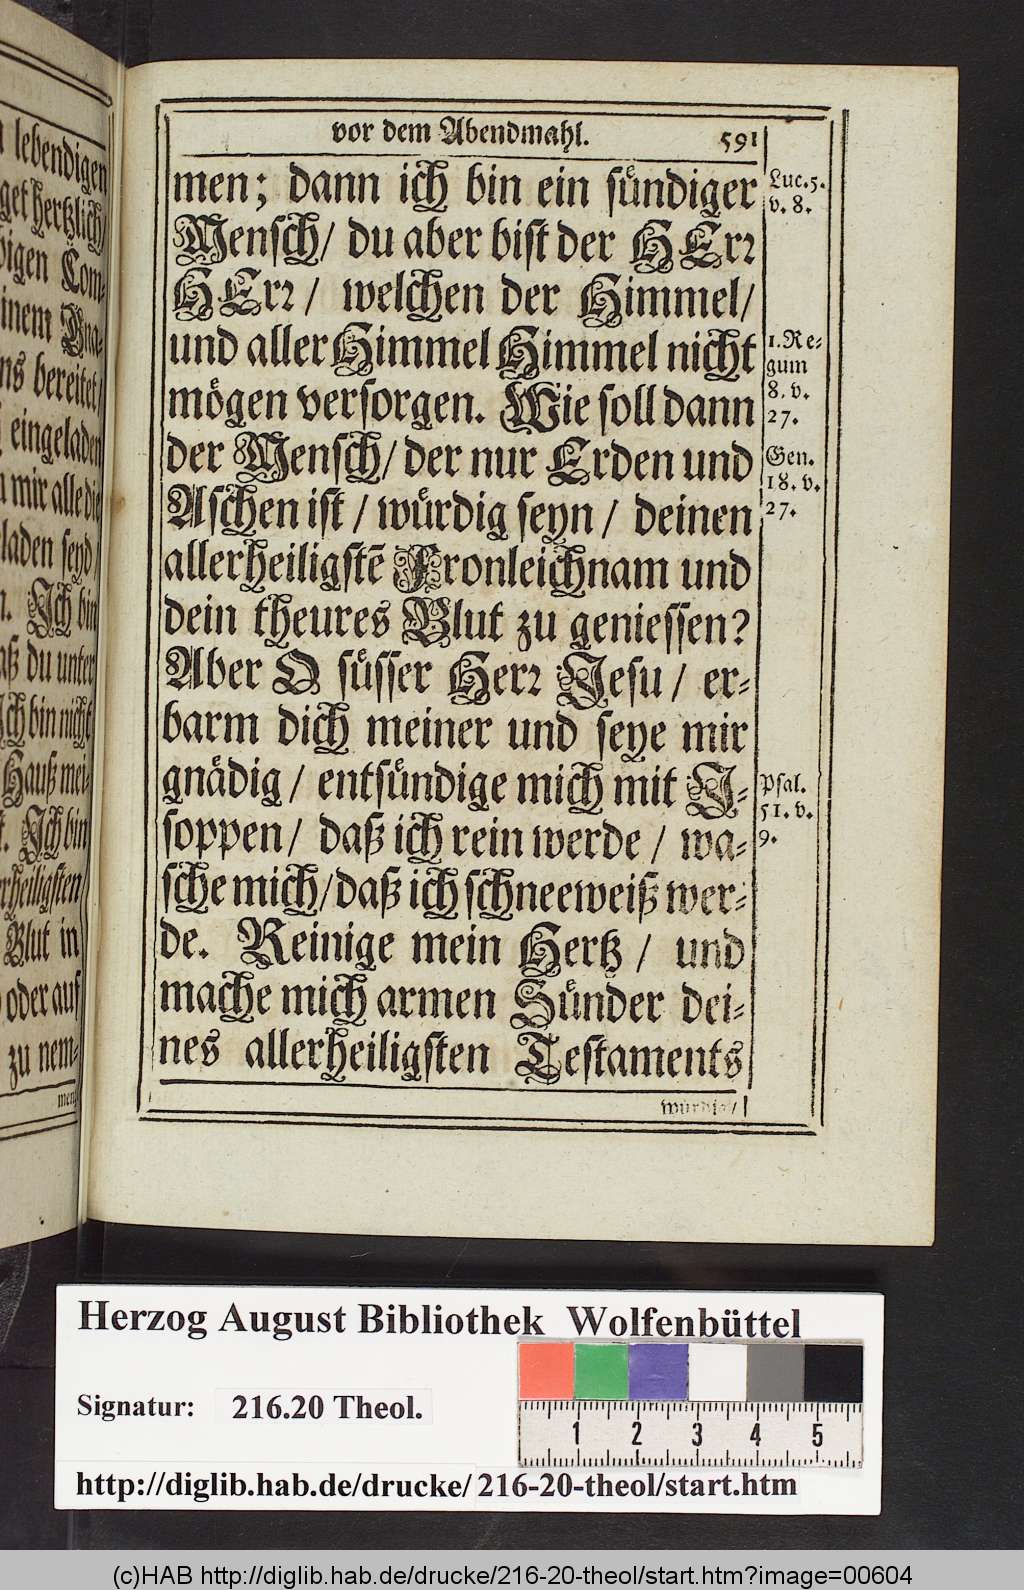 lebendigen
get hertzlich/
digen Com-
inem Gna-
ns bereitet/
eingeladen
mir alle die
laden seyd/
Ich bin
aß du unter
Ich bin nicht
Hauß mei-
Ich bin
rheiligsten
Blut in
oder auf
zu nem-
men;
vor dem Abendmahl. 591
men; dann ich bin ein sündiger
Mensch/ du aber bist der HErr
HErr/ welchen der Himmel/
und aller Himmel Himmel nicht
mögen versorgen. Wie soll dann
der Mensch/ der nur Erden und
Aschen ist/ würdig seyn/ deinen
allerheiligstē Fronleichnam und
dein theures Blut zu geniessen?
Aber O süsser Herr Jesu/ er-
barm dich meiner und seye mir
gnädig/ entsündige mich mit J-
soppen/ daß ich rein werde/ wa-
sche mich/ daß ich schneeweiß wer-
de. Reinige mein Hertz/ und
mache mich armen Sünder dei-
nes allerheiligsten Testaments
würdig/
Luc. 5.
v. 8.
1. Re-
gum
8. v.
27.
Gen.
18. v.
27.
Psal.
51. v.
9.
Herzog August Bibliothek Wolfenbüttel
Signatur: 216.20 Theol.
1 2 3 4 5
http://diglib.hab.de/drucke/ 216-20-theol/start.htm
(c)HAB http://diglib.hab.de/drucke/216-20-theol/start.htm?image=00604